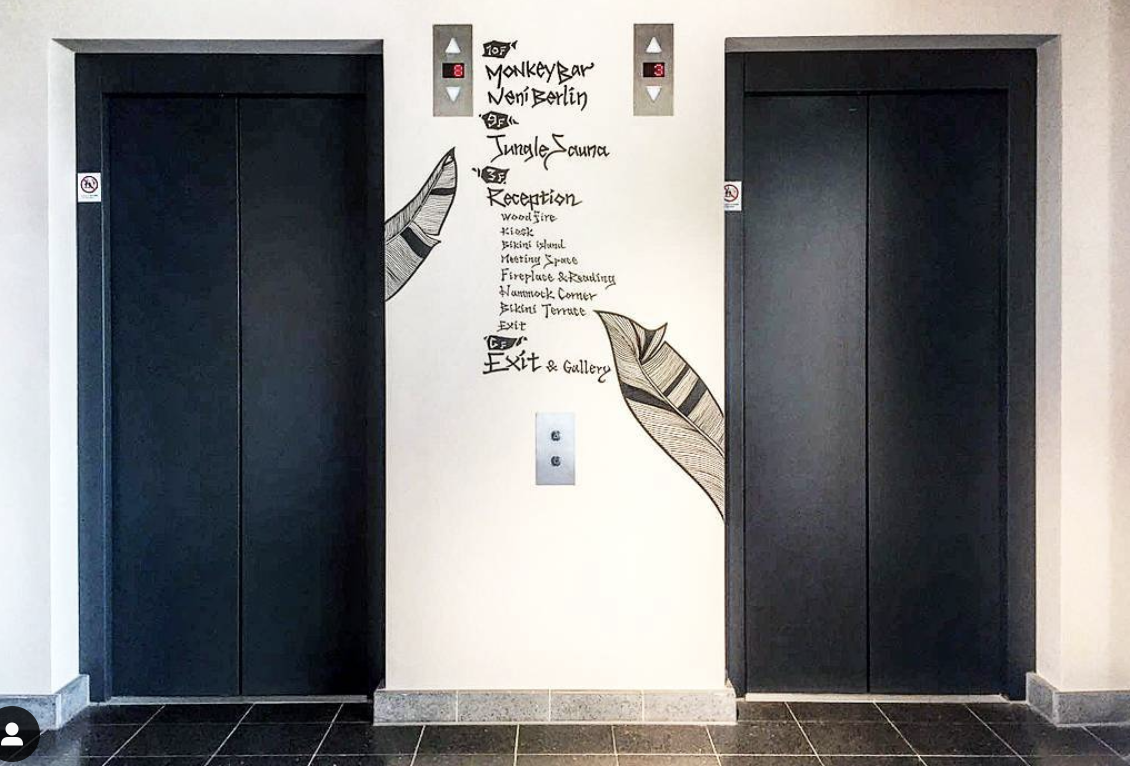 8
3
10F
MonkeyBar
Neni Berlin
9F
Jungle Sauna
3F
Reception
Woodfire
Kiosk
Bikini island
Meeting Space
Fireplace & Reading
Hammock Corner
Bikini Terrace
Exit
Exit & Gallery